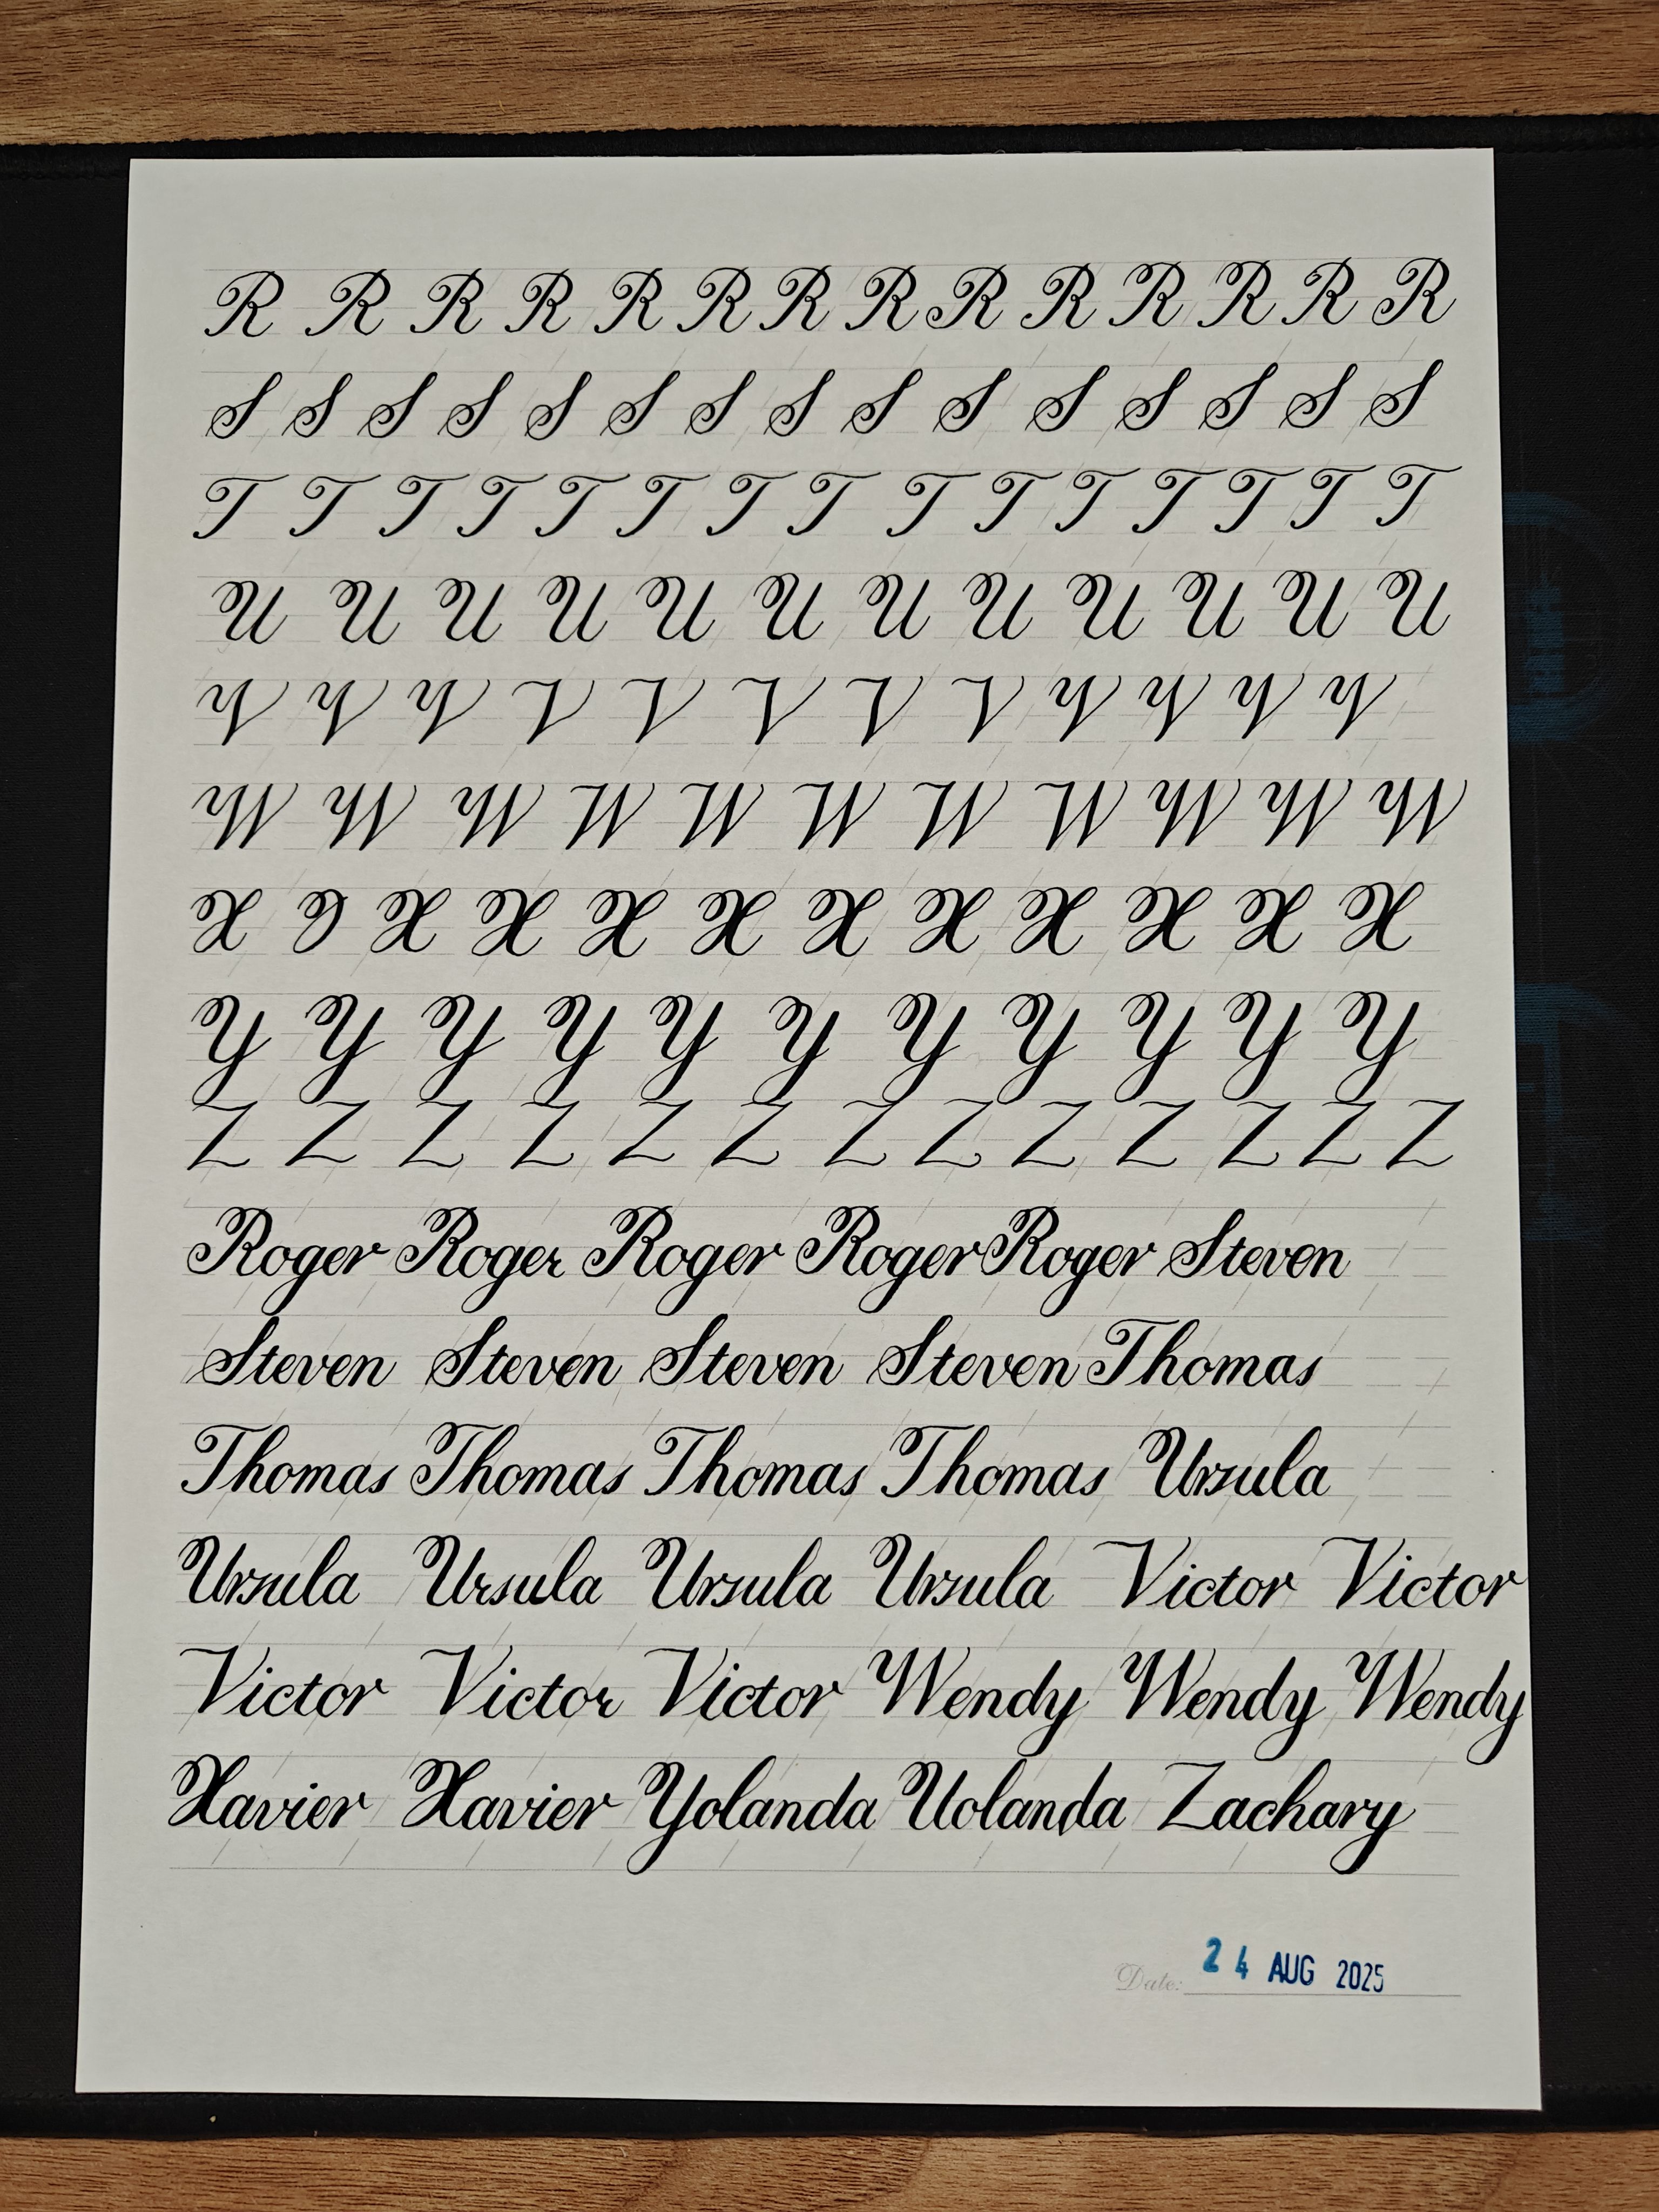 R R R R R R R R R R R R R R
S S S S S S S S S S S S S S S
T T T T T T T T T T T T T T T
U U U U U U U U U U U U
V V V V V V V V V V V V
W W W W W W W W W W W
X X X X X X X X X X X
Y Y Y Y Y Y Y Y Y Y Y
Z Z Z Z Z Z Z Z Z Z Z Z Z
Roger Roger Roger Roger Roger Steven
Steven Steven Steven Steven Thomas
Thomas Thomas Thomas Thomas Ursula
Ursula Ursula Ursula Ursula Victor Victor
Victor Victor Victor Wendy Wendy Wendy
Xavier Xavier Yolanda Uolanda Zachary
Date: 24 AUG 2025